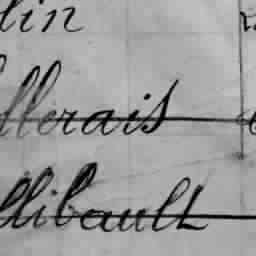 lin
llerais
llibault